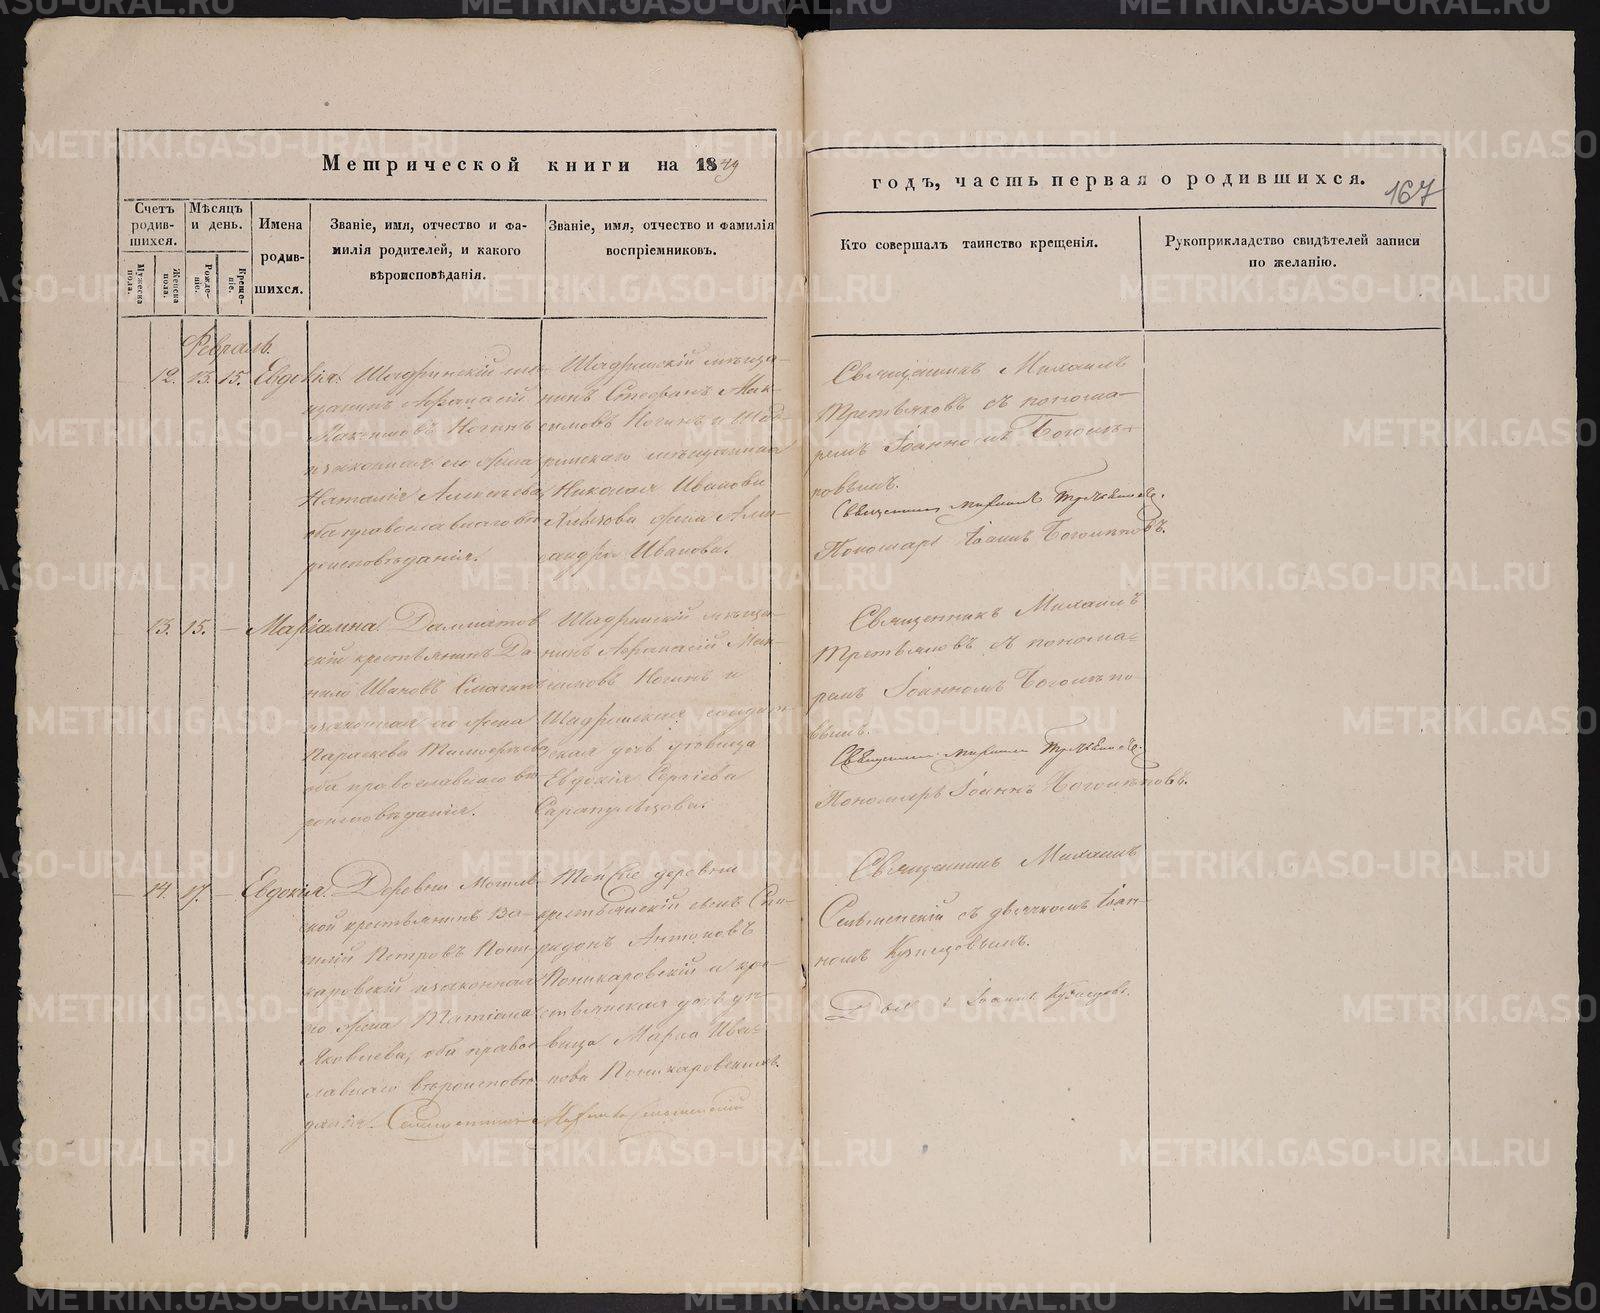 Метрической книги на 1849
годъ, часть первая о родившихся.
167
Счетъ родив-
шихся.
Мѣсяцъ
и день.
Имена
родив-
шихся.
Званіе, имя, отчество и фа-
милія родителей, и какого
вѣроисповѣданія.
Званіе, имя, отчество и фамилія
воспріемниковъ.
Кто совершалъ таинство крещенія.
Рукоприкладство свидѣтелей записи
по желанію.
Мужеска
пола.
Женска
пола.
Рожде-
ніе.
Креще-
ніе.
Февраль.
12. 13. 15. Евдокія.
Шадринскій мѣ-
щанинъ Афанасій
Максимовъ Ногинъ
и законная его жена
Наталія Алексѣева,
оба православнаго вѣ-
роисповѣданія.
Шадринскій мѣща-
нинъ Стефанъ Мак-
симовъ Ногинъ и Шад-
ринскаго мѣщанина
Николая Иванова
жена Алек-
сандра Иванова.
Священникъ Михаилъ
Третьяковъ съ понома-
ремъ Іоанномъ Боголѣ-
повымъ.
Священникъ Михаилъ Третьяковъ.
Пономарь Іоаннъ Боголѣповъ.
13. 15. — Маріамна.
Далматов
скій крестьянинъ Да-
нило Ивановъ Смагинъ
и законная его жена
Параскева Тимофѣева,
оба православнаго вѣ-
роисповѣданія.
Шадринскій мѣща-
нинъ Афанасій Мак-
симовъ Ногинъ и
Шадринская солдат-
ская дочь дѣвица
Евдокія Сергіева
Сарапульцова.
Священникъ Михаилъ
Третьяковъ съ понома-
ремъ Іоанномъ Боголѣпо
вымъ.
Священникъ Михаилъ Третьяковъ.
Пономарь Іоаннъ Боголѣповъ.
14. 17. — Евдокія.
Деревни Могиль-
ной крестьянинъ Ва-
силій Петровъ Пони-
каровскій и законная
его жена Татіана
Яковлева, оба правос-
лавнаго вѣроисповѣ-
данія.
Той же деревни
крестьянскій сынъ Спи-
ридонъ Антоновъ
Поникаровскій и кре-
стьянская дочь дѣ-
вица Марѳа Ива-
нова Поникаровскихъ.
Священникъ Михаилъ
Священникъ Михаилъ
съ дьячкомъ Іоан-
номъ Кузнецовымъ.
Іоаннъ Кузнецовъ.
METRIKI.GASO-URAL.RU